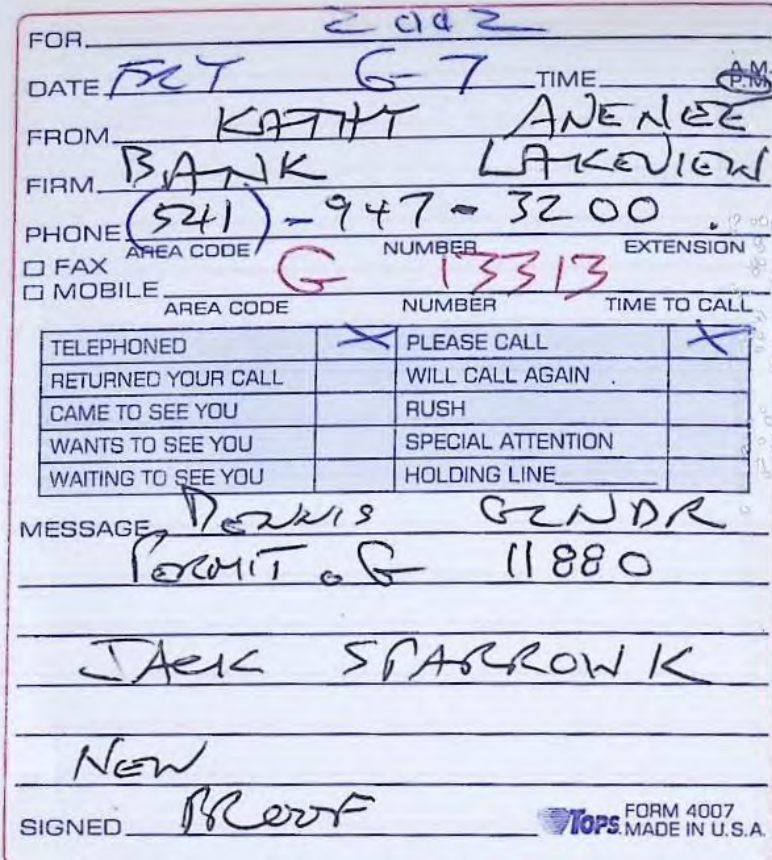 FOR 2002
DATE FRI 6-7 TIME A.M. P.M.
FROM KATHY
FIRM BANK LAKEVIEW
PHONE (541)-947-3200
AREA CODE NUMBER EXTENSION
☐ FAX
☐ MOBILE G 13313
AREA CODE NUMBER TIME TO CALL
TELEPHONED X PLEASE CALL X
RETURNED YOUR CALL WILL CALL AGAIN
CAME TO SEE YOU RUSH
WANTS TO SEE YOU SPECIAL ATTENTION
WAITING TO SEE YOU HOLDING LINE
MESSAGE DENNIS
PERMIT. G 11880
JACK SPARROWK
NEW
SIGNED PROOF
TOPS FORM 4007
MADE IN U.S.A.